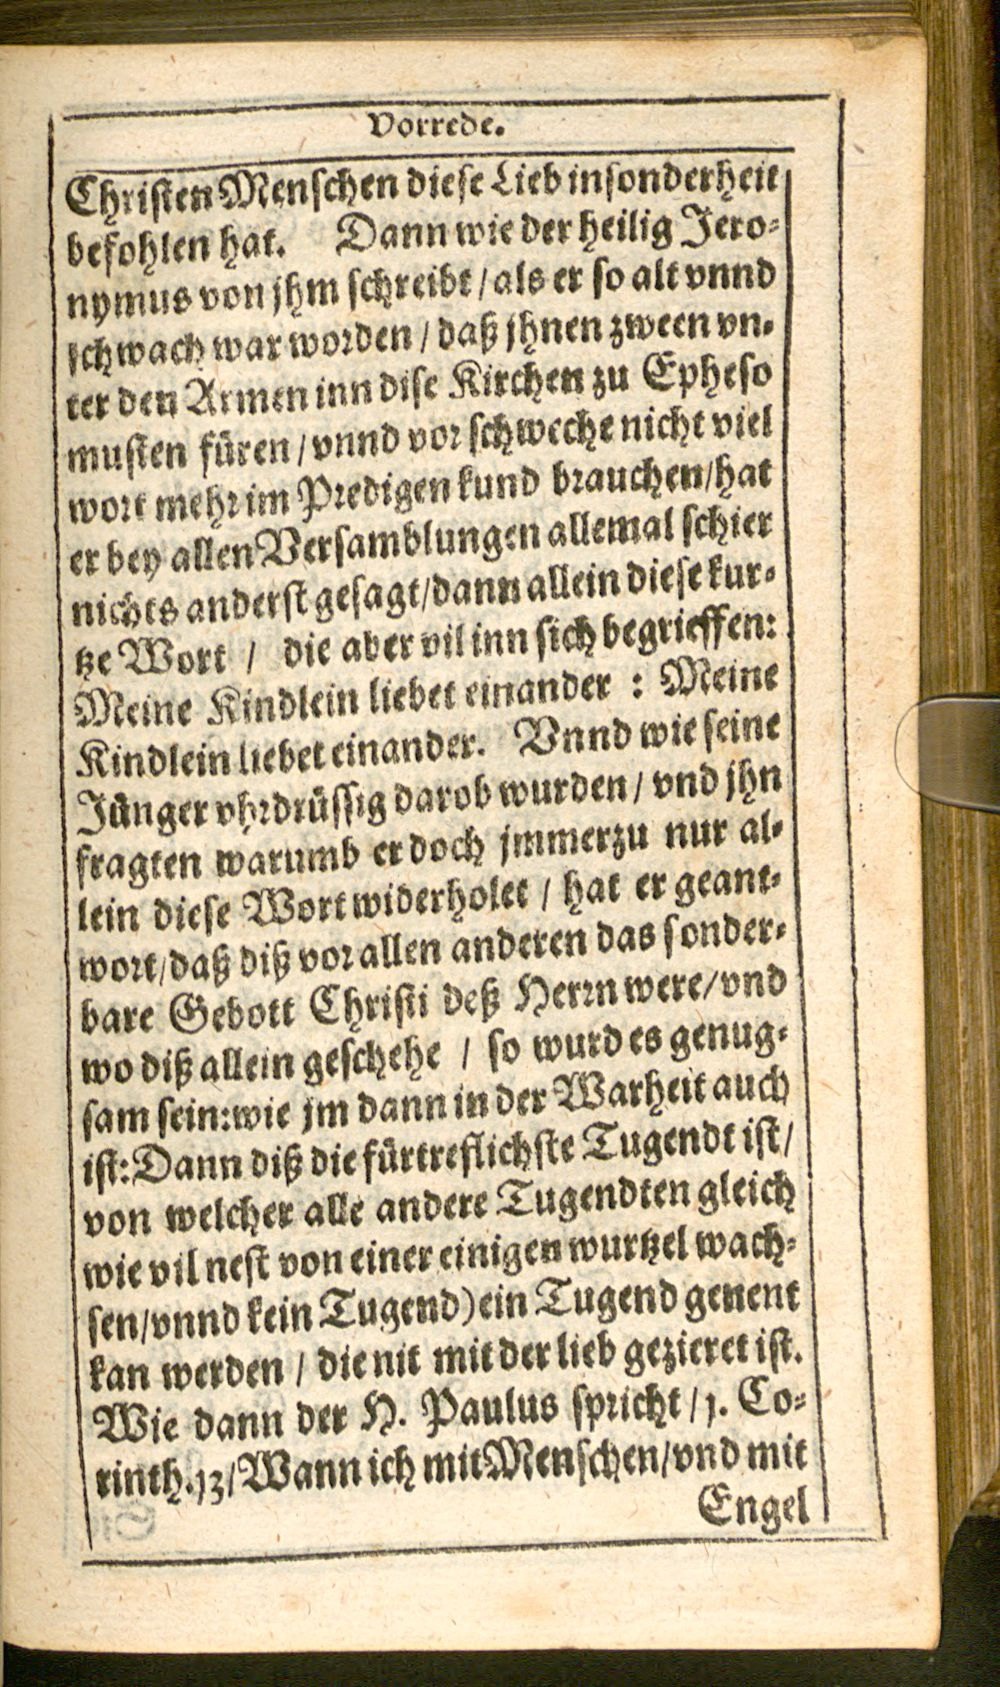 Vorrede.
Christen Menschen diese Lieb insonderheit
befohlen hat. Dann wie der heilig Jero-
nymus von jhm schreibt / als er so alt vnnd
schwach war worden / daß jhnen zween vn-
ter den Armen inn dise Kirchen zu Epheso
musten füren / vnnd vor schweche nicht viel
wort mehr im Predigen kund brauchen / hat
er bey allen Versamblungen allemal schier
nichts anderst gesagt / dann allein diese kur-
tze Wort / die aber vil inn sich begrieffen:
Meine Kindlein liebet einander : Meine
Kindlein liebet einander. Vnnd wie seine
Jünger vhrdrüssig darob wurden / vnd jhn
fragten warumb er doch jmmerzu nur al-
lein diese Wort widerholet / hat er geant-
wort / daß diß vor allen anderen das sonder-
bare Gebott Christi deß Herrn were / vnd
wo diß allein geschehe / so wurd es genug-
sam sein: wie jm dann in der Warheit auch
ist: Dann diß die fürtreflichste Tugendt ist /
von welcher alle andere Tugendten gleich
wie vil nest von einer einigen wurtzel wach-
sen / vnnd kein Tugend) ein Tugend genent
kan werden / die nit mit der lieb gezieret ist.
Wie dann der H. Paulus spricht / 1. Co-
rinth. 13 / Wann ich mit Menschen / vnd mit
Engel